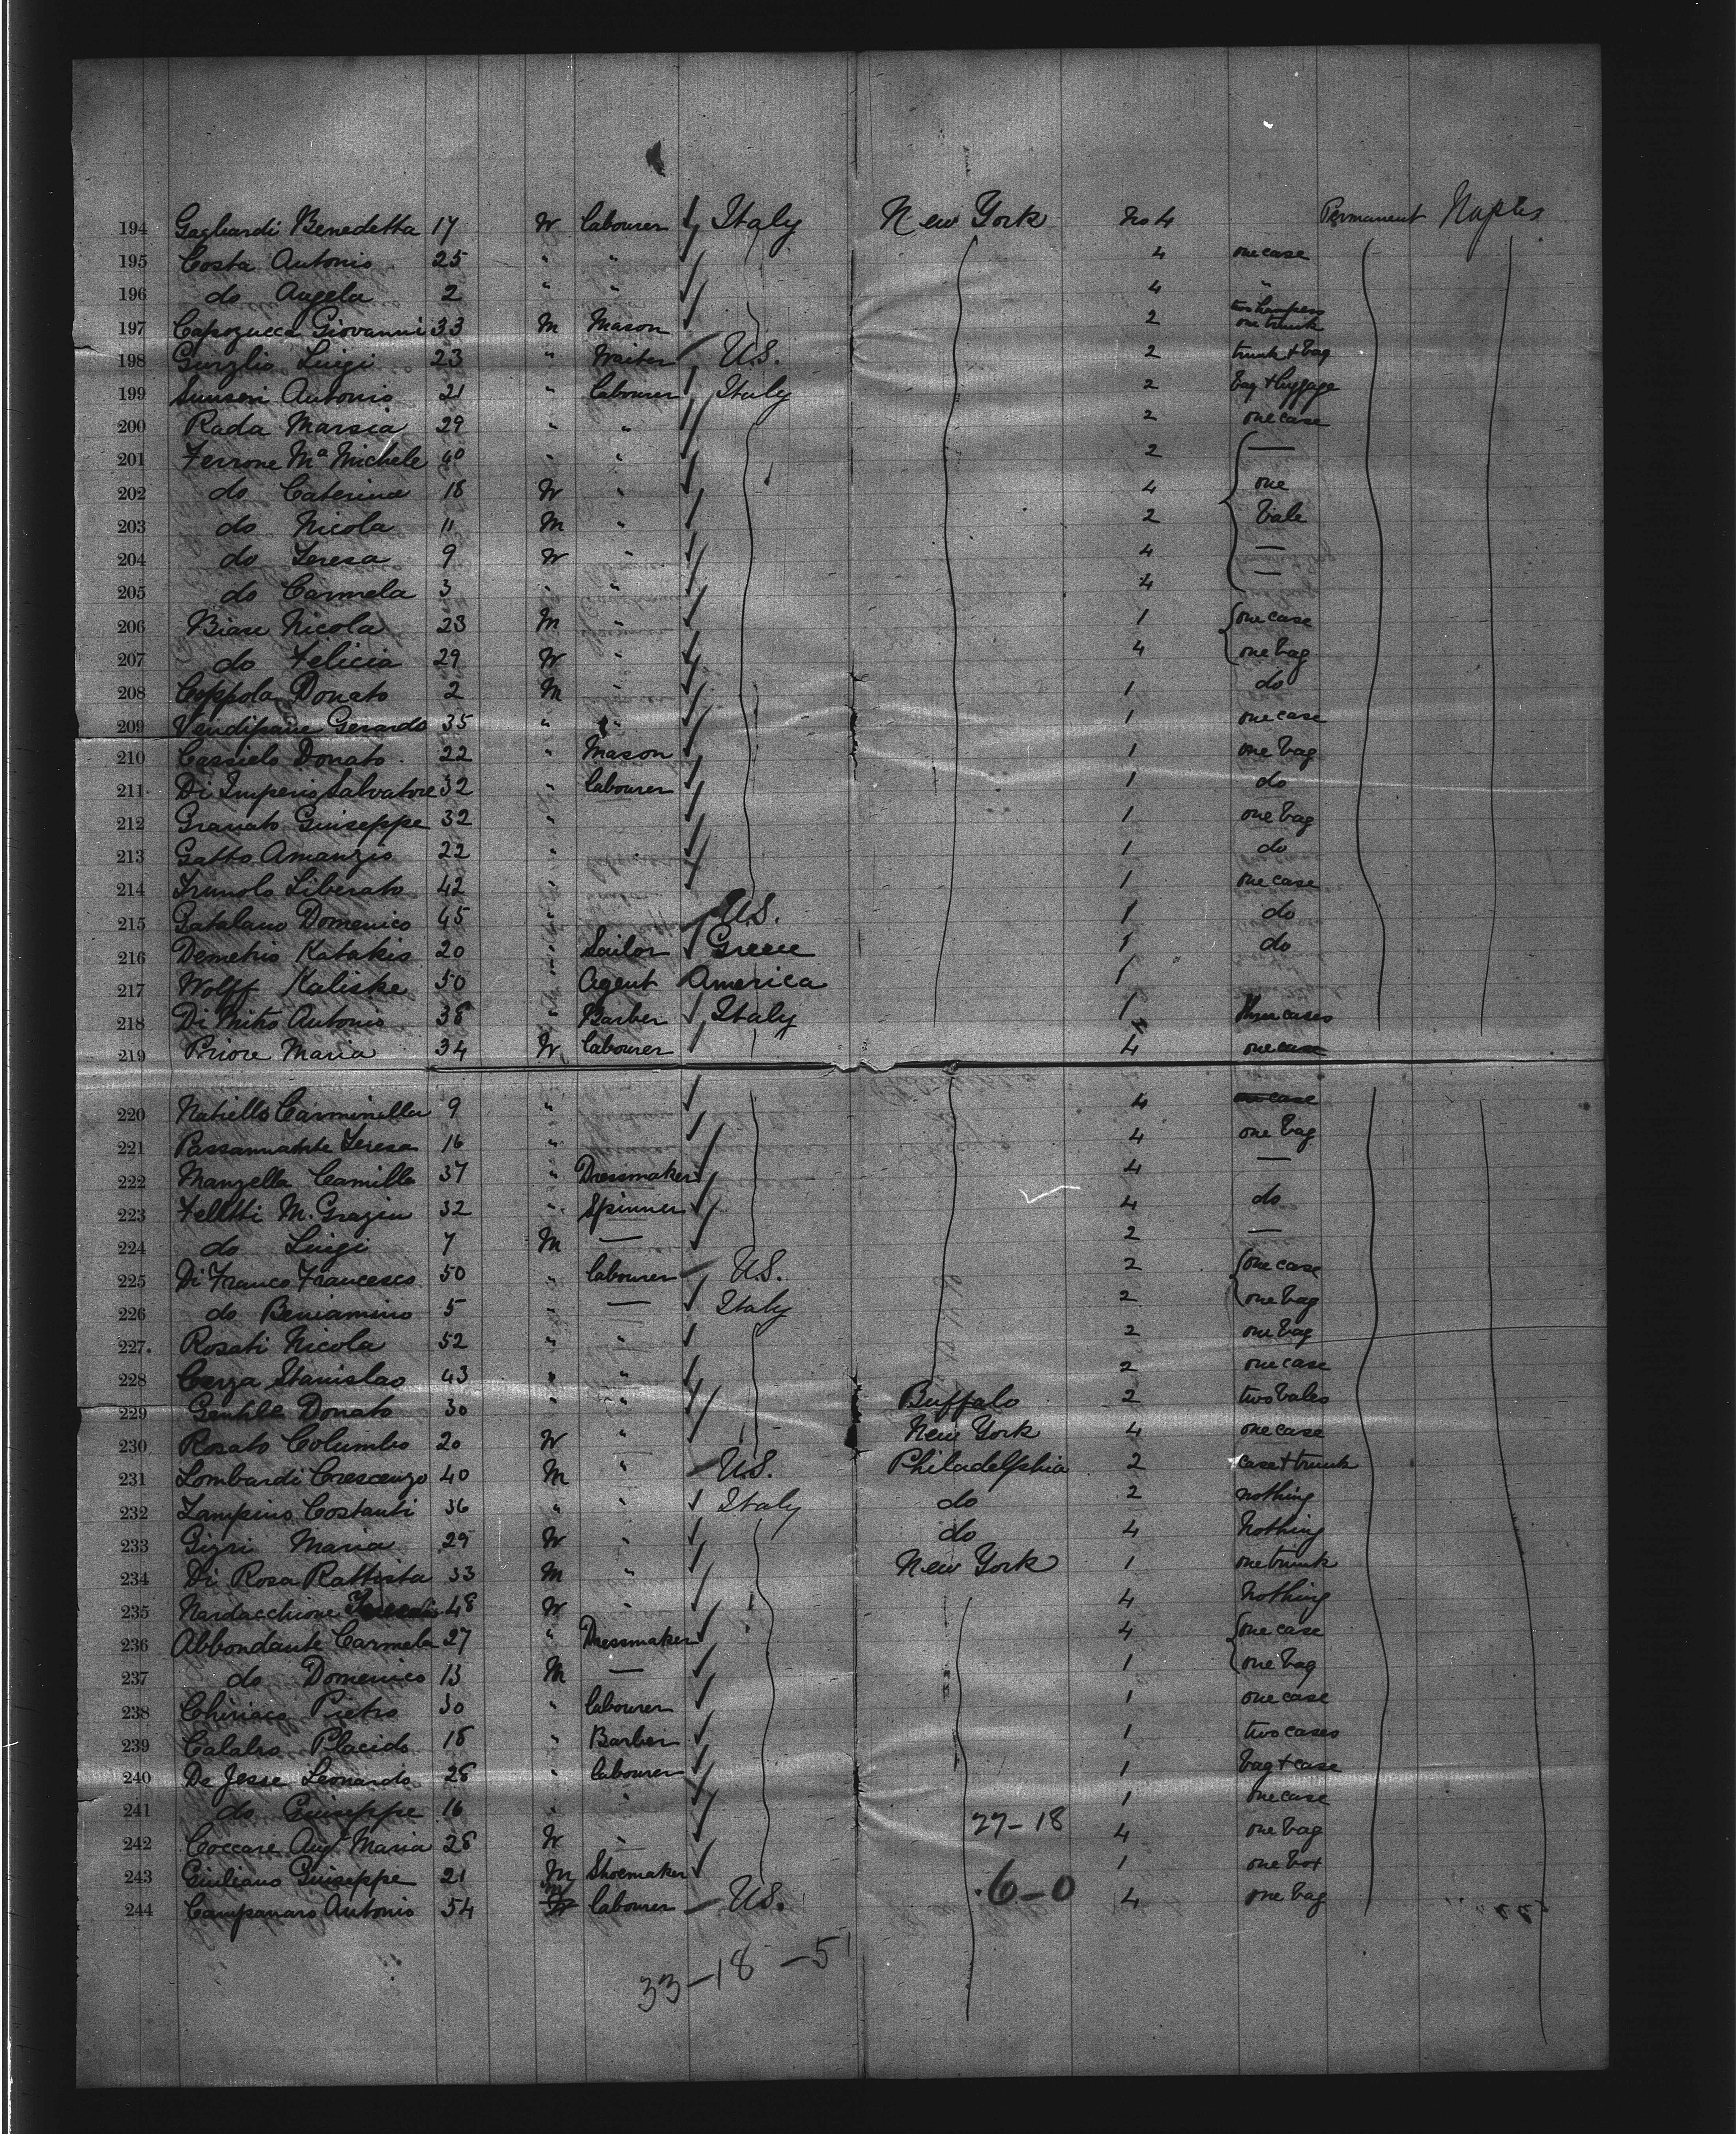 194 Gagliardi Benedetta 17 W Labourer Italy New York No 4 Permanent Naples
195 Costa Antonio 25 " " 4 one case
196 do Angela 2 " " 4 "
197 Capozucca Giovanni 33 M Mason 2 two hampers one trunk
198 Luigi 23 " Waiter U.S. 2 trunk + bag
199 Antonio 21 " Labourer Italy 2 bag + luggage
200 Rada Marsia 29 " " 2 one case
201 Ferrone Ma Michele 40 " " 2 —
202 do Caterina 18 W " 4 one
203 do Nicola 11 M " 2 bale
204 do Teresa 9 W " 4 —
205 do Carmela 3 " " 4 —
206 Biase Nicola 23 M " 1 one case
207 do Felicia 29 W " 4 one bag
208 Coppola Donato 2 M " 1 do
209 Gerardo 35 " " 1 one case
210 Cassielo Donato 22 " Mason 1 one bag
211 Di Imperio Salvatore 32 " Labourer 1 do
212 Granato Guiseppe 32 " 1 one bag
213 Gatto Amanzio 22 " 1 do
214 Liberato 42 " 1 one case
215 Catalano Domenico 45 " U.S. 1 do
216 Demetrio Katakis 20 " Sailor Greece 1 do
217 Wolff Kaliske 50 " Agent America 1
218 Di Nitro Antonio 38 " Barber Italy 1 three cases
219 Priore Maria 34 W Labourer 4 one case
220 Natiello Carminella 9 " 4 one case
221 Passannante Teresa 16 " 4 one bag
222 Manzella Camilla 37 " Dressmaker 4 —
223 M. Grazia 32 " Spinner 4 do
224 do Luigi 7 M — 2 —
225 Di Franco Francesco 50 " Labourer U.S. 2 one case
226 do Beniamino 5 " — Italy 2 one bag
227. Rosati Nicola 52 " " 2 one bag
228 Cerza Stanislao 43 " " 2 one case
229 Gentile Donato 30 " " Buffalo 2 two bales
230 Rosato Columbo 20 W " New York 4 one case
231 Lombardi Crescenzo 40 M " U.S. Philadelphia 2 case + trunk
232 Zampino Costanti 36 " " Italy do 2 nothing
233 Maria 29 W " do 4 Nothing
234 Di Rosa Battista 33 M " New York 1 one trunk
235 Nardacchione 48 W " 4 Nothing
236 Abbondante Carmela 27 " Dressmaker 4 one case
237 do Domenico 13 M — 1 one bag
238 Chiriaco Pietro 30 " Labourer 1 one case
239 Calabro Placido 18 " Barber 1 two cases
240 De Jesse Leonardo 28 " Labourer 1 bag + case
241 do Guiseppe 16 " " 1 one case
27-18
242 Coccare Maria 28 W " 4 one bag
243 Giuliano Guiseppe 21 M Shoemaker 1 one box
6-0
244 Campanaro Antonio 54 M Labourer U.S. 4 one bag
33-18-51